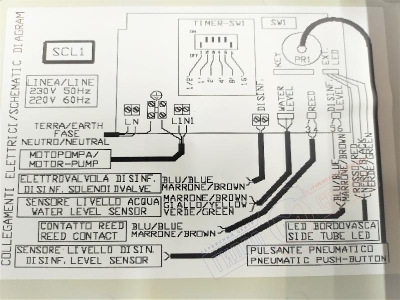 COLLEGAMENTI ELETTRICI/SCHEMATIC DIAGRAM
SCL1
TIMER-SW1
SW1
KEY
PR1
EXT
LED
LINEA/LINE
230V 50Hz
220V 60Hz
L N
L1N1
DISINF.
WATER
LEVEL
REED
TERRA/EARTH
FASE
NEUTRO/NEUTRAL
MOTOPOMPA/
MOTOR-PUMP
ELETTROVALVOLA DISINF.
DISINF. SOLENOIDVALVE
BLU/BLUE
MARRONE/BROWN
SENSORE LIVELLO ACQUA
WATER LEVEL SENSOR
MARRONE/BROWN
GIALLO/YELLOW
VERDE/GREEN
CONTATTO REED
REED CONTACT
BLU/BLUE
MARRONE/BROWN
SENSORE LIVELLO DISIN.
DISINF. LEVEL SENSOR
BLU/BLUE
MARRONE/BROWN
ROSSO/RED
VERDE/GREEN
LED BORDOVASCA
SIDE TUBE LED
PULSANTE PNEUMATICO
PNEUMATIC PUSH-BUTTON